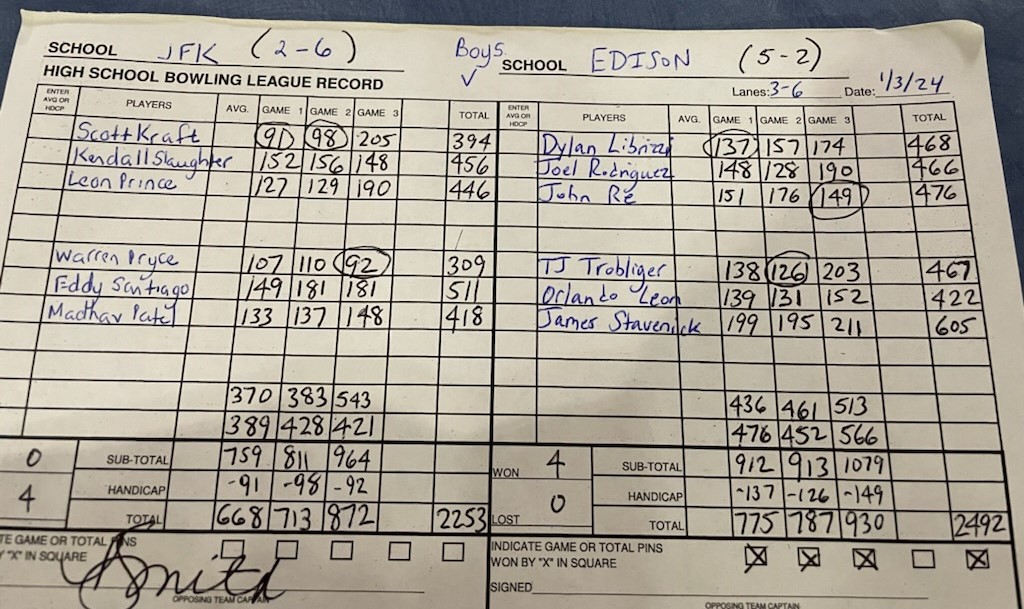 SCHOOL JFK (2-6) Boys SCHOOL EDISON (5-2)
HIGH SCHOOL BOWLING LEAGUE RECORD Lanes: 3-6 Date: 1/3/24
ENTER AVG OR HDCP PLAYERS AVG. GAME 1 GAME 2 GAME 3 TOTAL ENTER AVG OR HDCP PLAYERS AVG. GAME 1 GAME 2 GAME 3 TOTAL
Scott Kraft 91 98 205 394 Dylan Librizzi 137 157 174 468
Kendall Slaughter 152 156 148 456 Joel Rodriguez 148 128 190 466
Leon Prince 127 129 190 446 John Re 151 176 149 476
Warren Pryce 107 110 92 309 TJ Trobliger 138 126 203 467
Eddy Santiago 149 181 181 511 Orlando Leon 139 131 152 422
Madhav Patel 133 137 148 418 James Stavenick 199 195 211 605
370 383 543 436 461 513
389 428 421 476 452 566
0 SUB-TOTAL 759 811 964 WON 4 SUB-TOTAL 912 913 1079
4 HANDICAP -91 -98 -92 LOST 0 HANDICAP -137 -126 -149
TOTAL 668 713 872 2253 TOTAL 775 787 930 2492
TE GAME OR TOTAL PINS INDICATE GAME OR TOTAL PINS
BY "X" IN SQUARE WON BY "X" IN SQUARE X X X X
SIGNED
OPPOSING TEAM CAPTAIN OPPOSING TEAM CAPTAIN